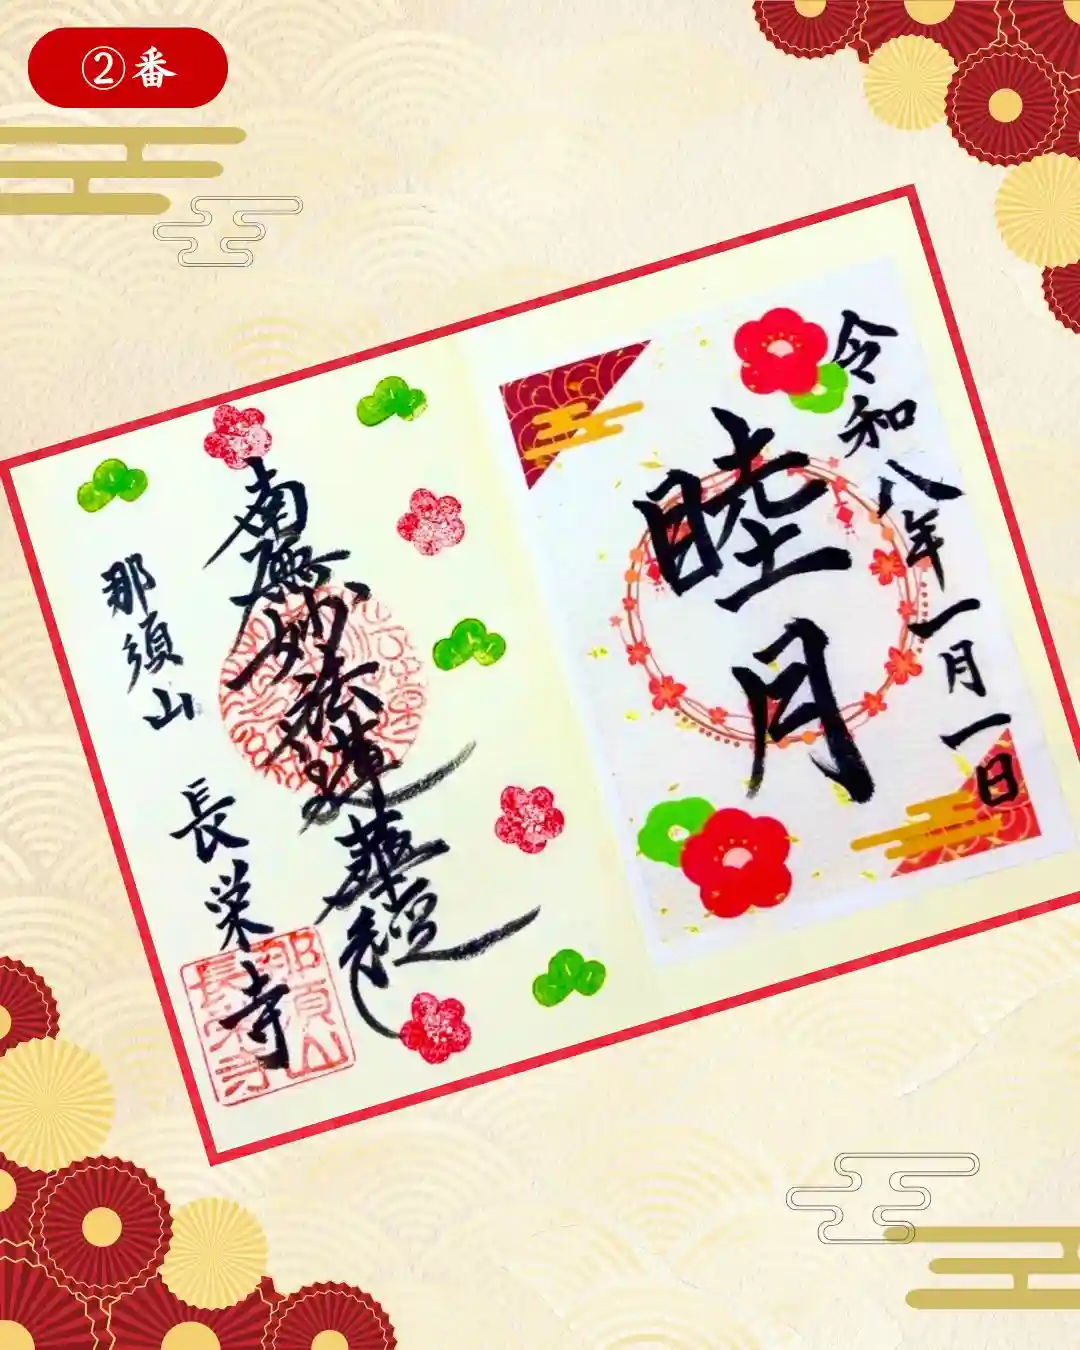 ②番
令和八年一月一日
睦月
南無妙法蓮華経
那須山 長栄寺
那須山
長栄寺